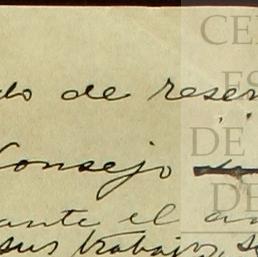 do de reser
Consejo
ante el
sus trabajos, s
CE
ES
DE
DE